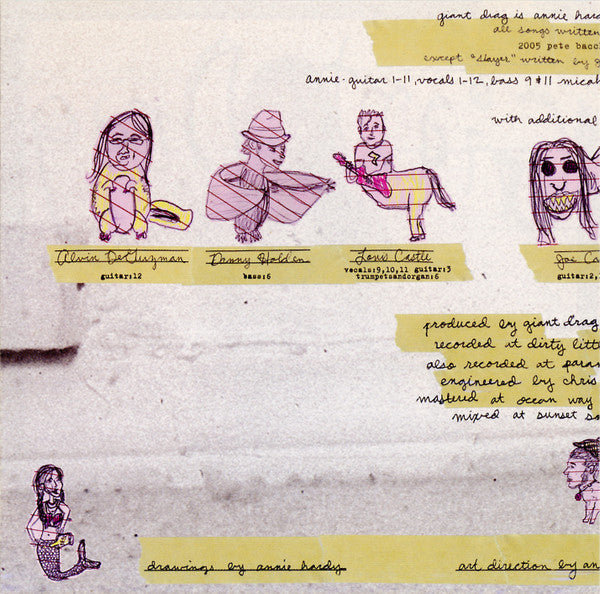 giant drag is annie hard
all songs written
2005 pete bacc
except "slayer" written by
annie - guitar 1-11, vocals 1-12, bass 9 & 11 micah
with additional
Alvin DeGuzman
guitar:12
Danny Holden
bass:6
Lous Castle
vocals:9,10,11 guitar:3
trumpetsandorgan:6
Joe Ca
guitar:2,
produced by giant drag
recorded at dirty litt
also recorded at param
engineered by chris
mastered at ocean way
mixed at sunset so
drawings by annie hardy
art direction by an